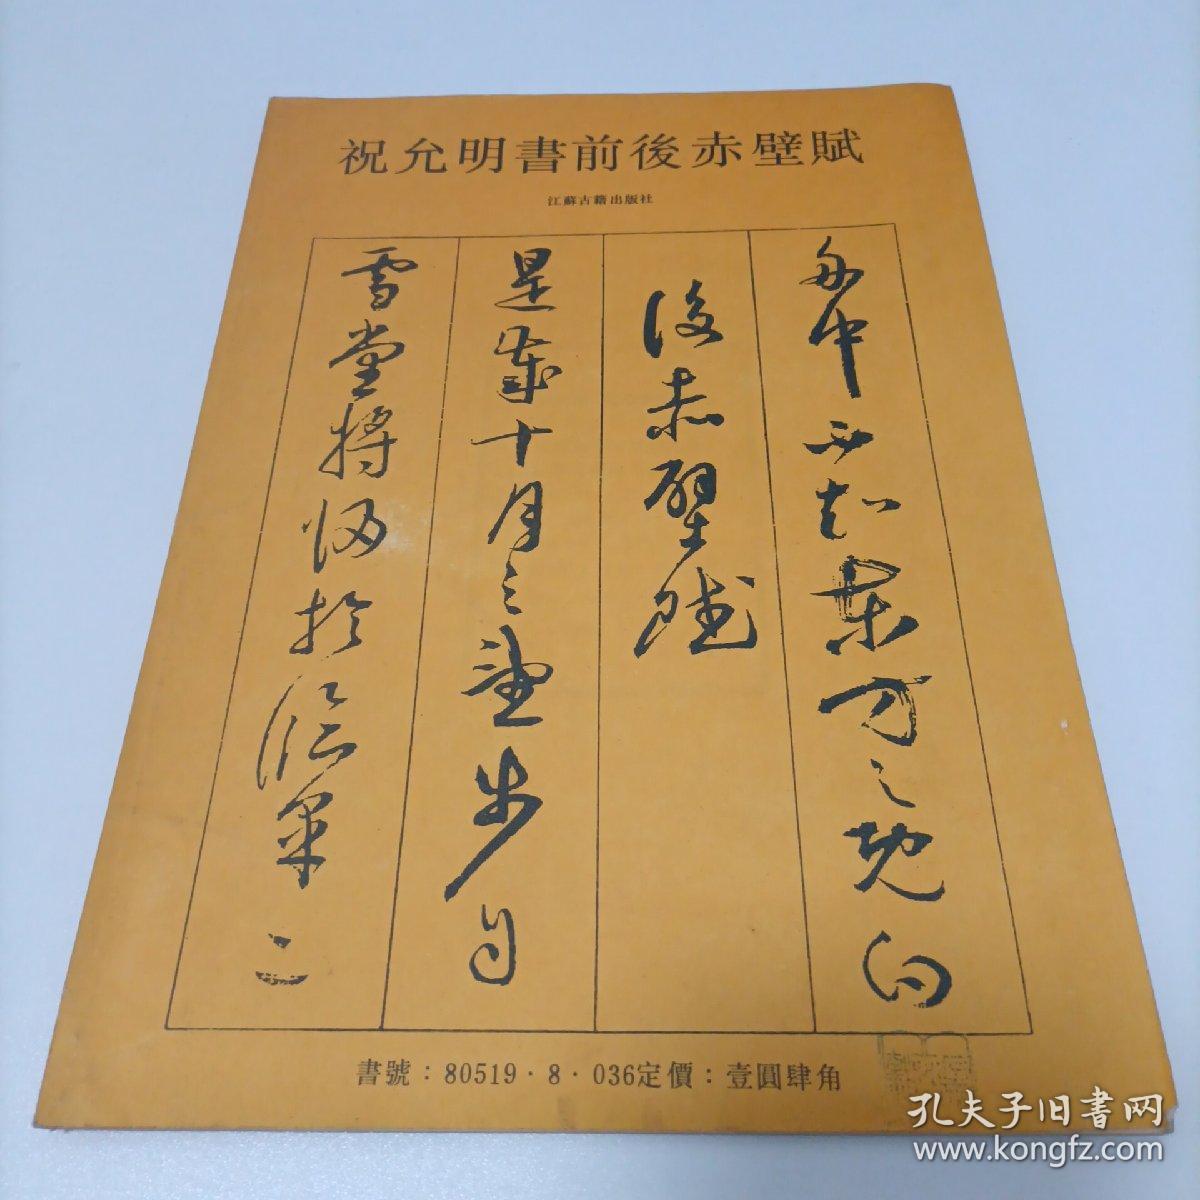 祝允明書前後赤壁賦
江蘇古籍出版社
舟中不知東方之既白
後赤壁賦
是歲十月之望步自
雪堂將歸於臨皋二
書號：80519·8·036定價：壹圓肆角
孔夫子旧書网
www.kongfz.com